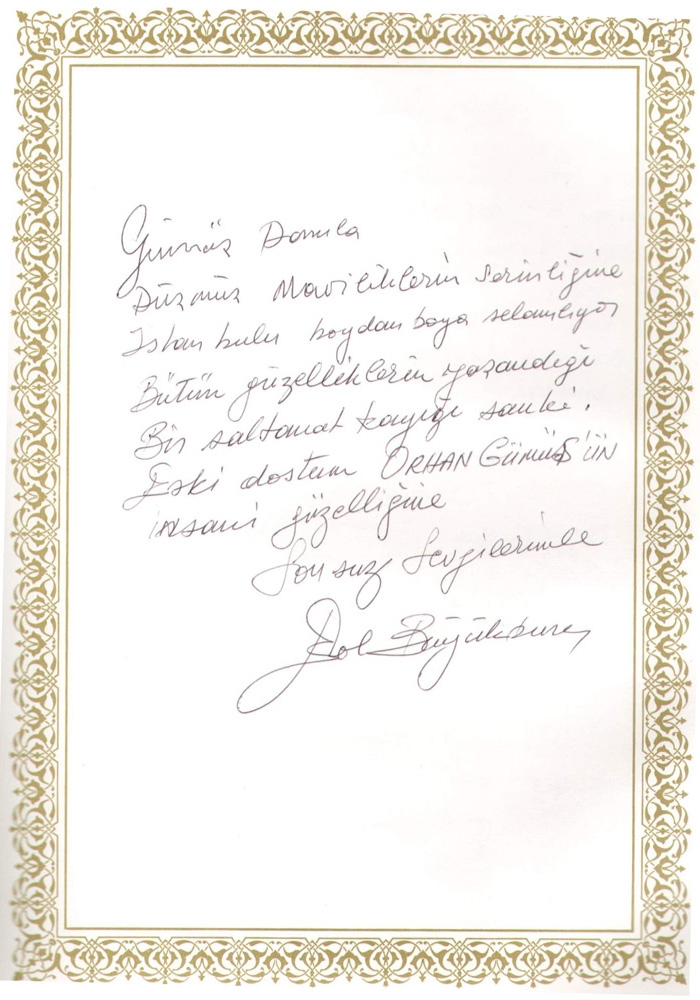 Gümüş Damla
Düşmüş Maviliklerin serinliğine
İstanbulu boydan boya selamlıyor
Bütün güzelliklerin yaşandığı
Bir saltanat kayığı sanki.
Eski dostum ORHAN GÜMÜŞ'ÜN
insani güzelliğine
Sonsuz Sevgilerimle
Erol Büyükburç